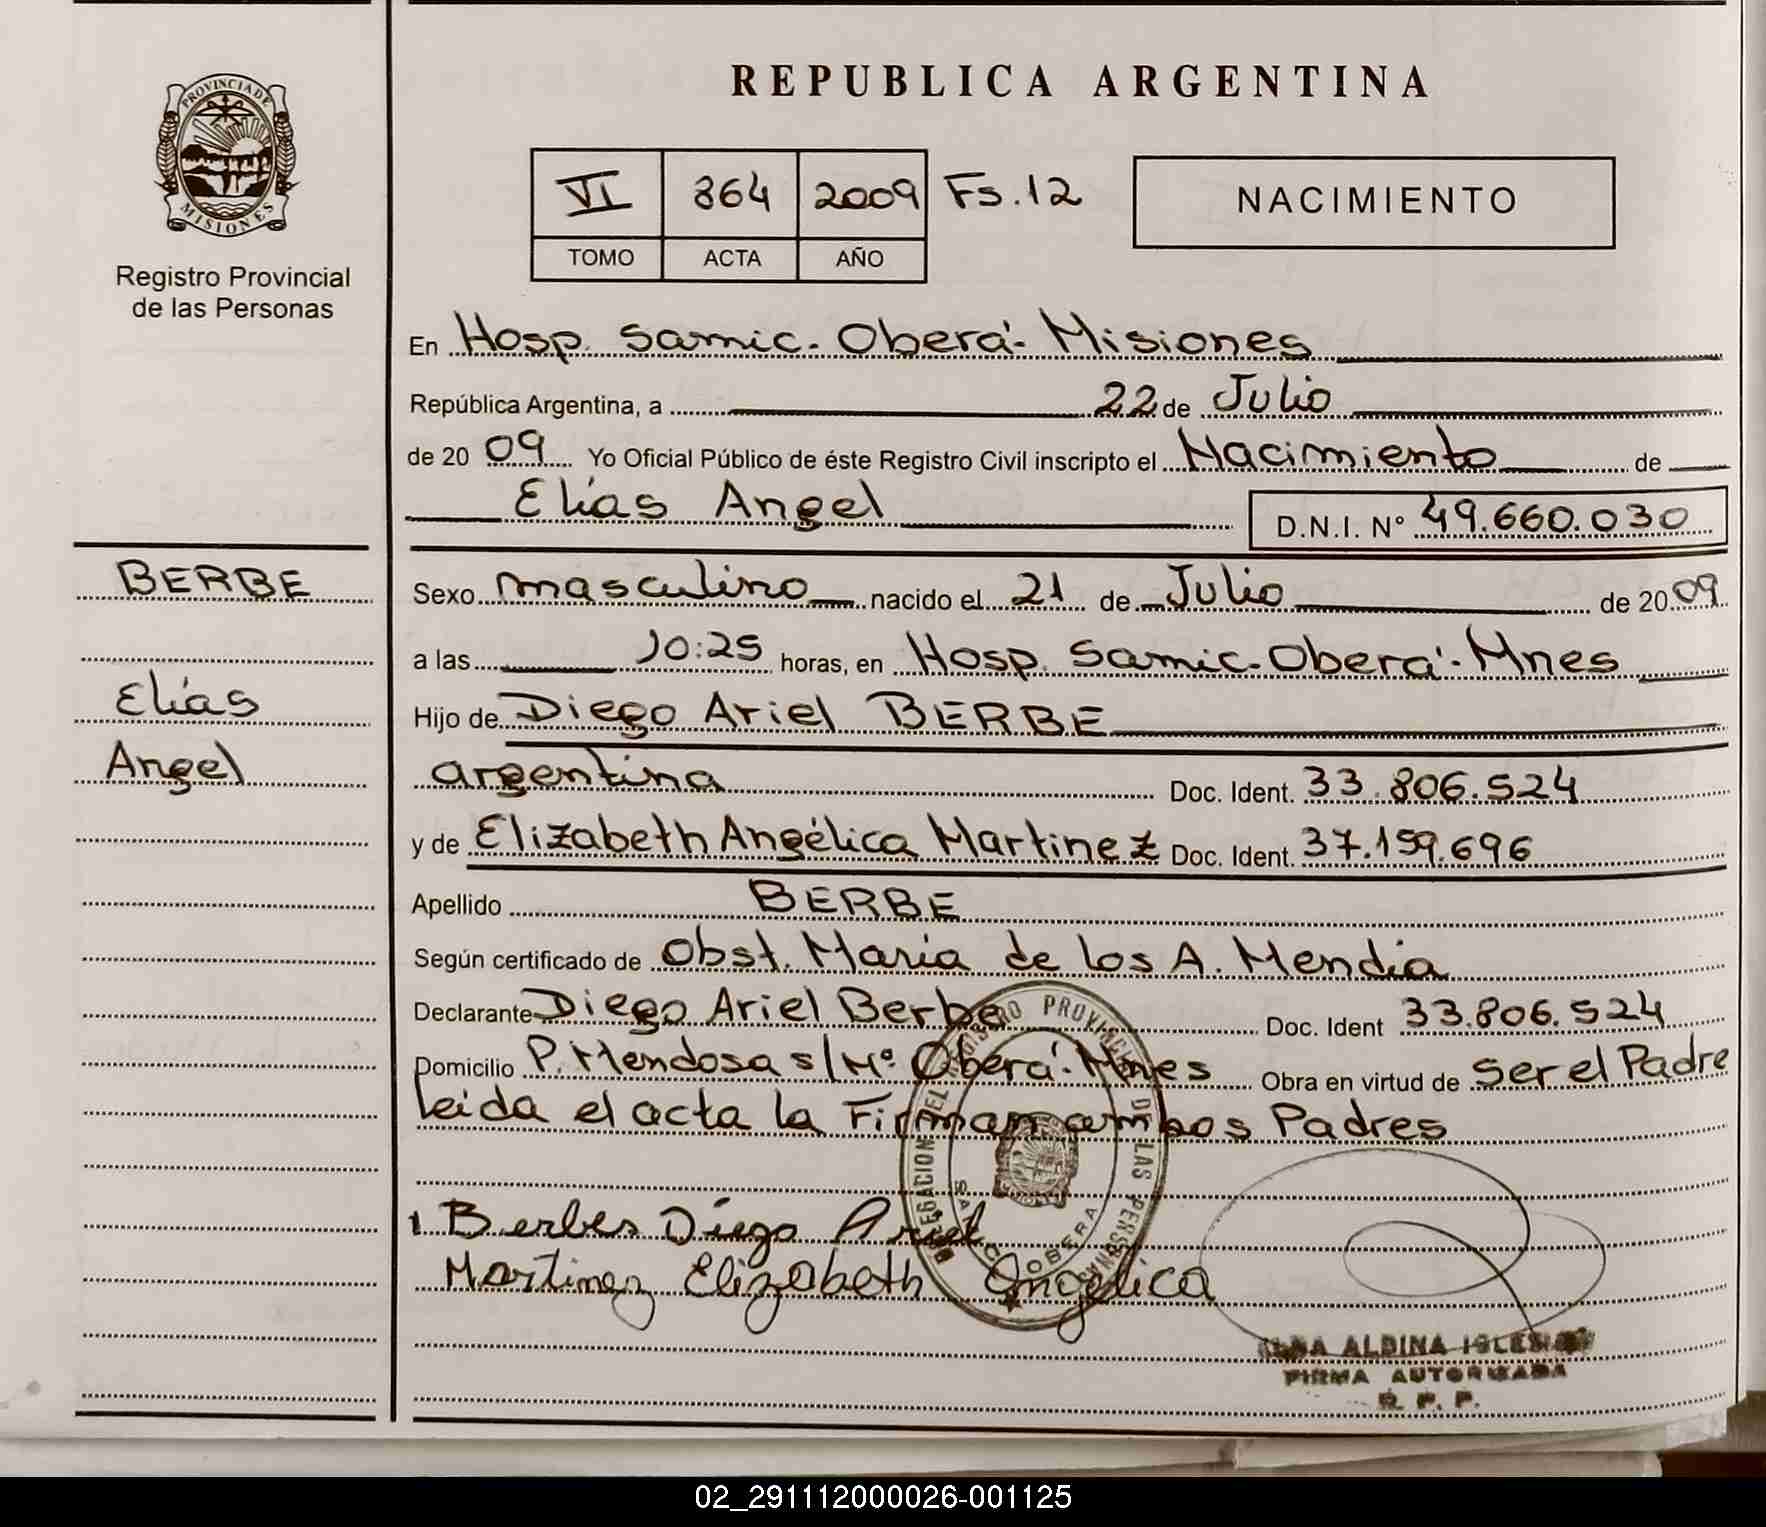 PROVINCIA DE
MISIONES
Registro Provincial
de las Personas
BERBE
Elías
Angel
REPUBLICA ARGENTINA
VI 364 2009 Fs.12
TOMO ACTA AÑO
NACIMIENTO
En Hosp. Samic. Oberá- Misiones
República Argentina, a 22 de Julio
de 20 09 Yo Oficial Público de éste Registro Civil inscripto el Nacimiento de
Elías Angel D.N.I. N° 49.660.030
Sexo masculino nacido el 21 de Julio de 20 09
a las 10:25 horas, en Hosp. Samic. Oberá- Mnes
Hijo de Diego Ariel BERBE
argentina Doc. Ident. 33.806.524
y de Elizabeth Angélica Martinez Doc. Ident. 37.159.696
Apellido BERBE
Según certificado de Obst. María de los A. Mendia
Declarante Diego Ariel Berbe Doc. Ident 33.806.524
Domicilio P. Mendosa s/Nº Oberá- Mnes Obra en virtud de Ser el Padre
leida el acta la Firman ambos Padres
DELEGACION DEL REGISTRO PROVINCIAL DE LAS PERSONAS
OBERA
Berbes Diego Ariel
Martinez Elizabeth Angelica
ALDINA IGLESIAS
FIRMA AUTORIZADA
R. P. P.
02_291112000026-001125